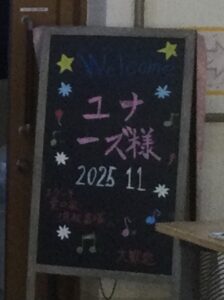 Welcome
ユナ
ーズ様
2025 11
ようこそ